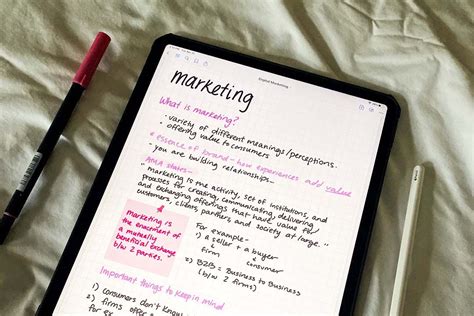 Digital Marketing
marketing
What is marketing?
- variety of different meanings/perceptions
- offering value to consumers
* essence of brand - how experiences add value
- you are building relationships -
AMA states -
" marketing is the activity, set of institutions, and
processes for creating, communicating, delivering,
and exchanging offerings that have value for
customers, clients, partners, and society at large. "
Marketing is
the enactment of
a mutually
beneficial exchange
b/w 2 parties.
For example -
1) a seller + a buyer
firm
consumer
2) B2B = Business to Business
(b/w 2 firms)
Important things to keep in mind
1) consumers don't know
2) firms offer